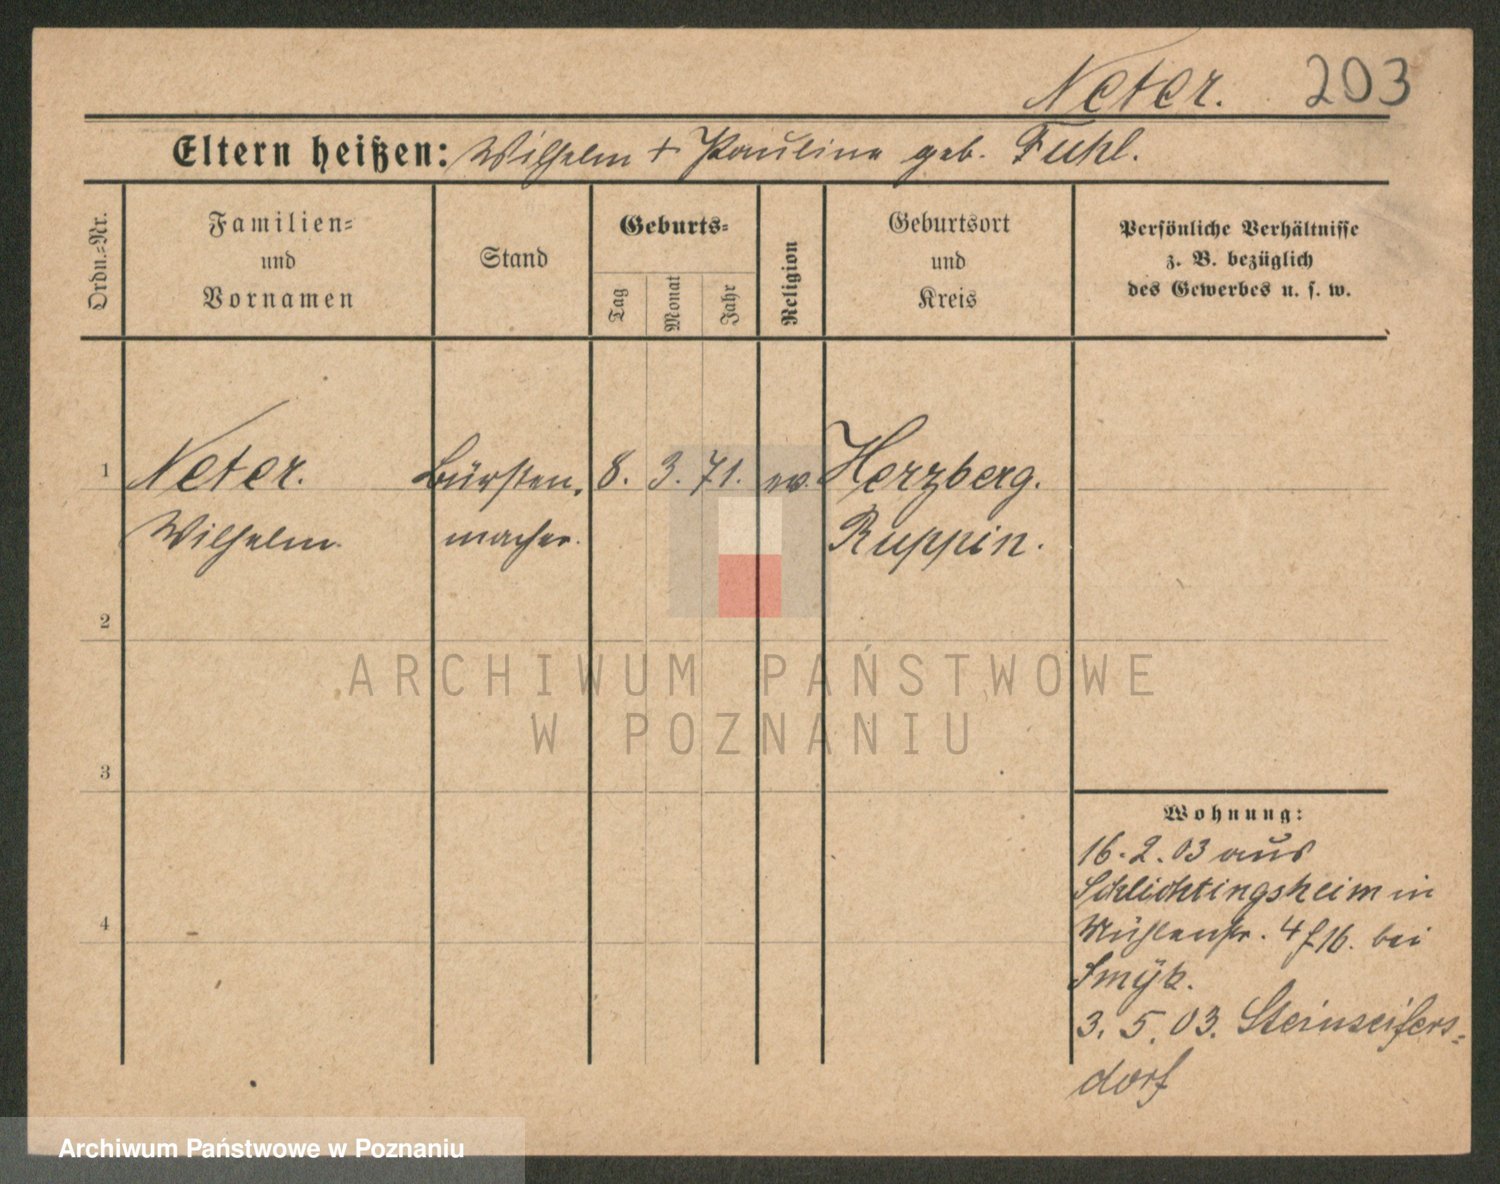 Neter. 203
Eltern heißen: Wilhelm + Pauline geb. Fuhl.
Ordn.=Nr.
Familien=
und
Vornamen
Stand
Geburts=
Tag
Monat
Jahr
Religion
Geburtsort
und
Kreis
Persönliche Verhältnisse
z. B. bezüglich
des Gewerbes u. s. w.
1 Neter. Bürsten. 8. 3. 71. ev. Herzberg.
Wilhelm macher. Ruppin.
2
3
4
Wohnung:
16.2.03 aus
Schlichtingsheim in
Mühlenstr. 4 f 16. bei
3. 5. 03. Steinseifers=
dorf
ARCHIWUM PAŃSTWOWE
W POZNANIU
Archiwum Państwowe w Poznaniu